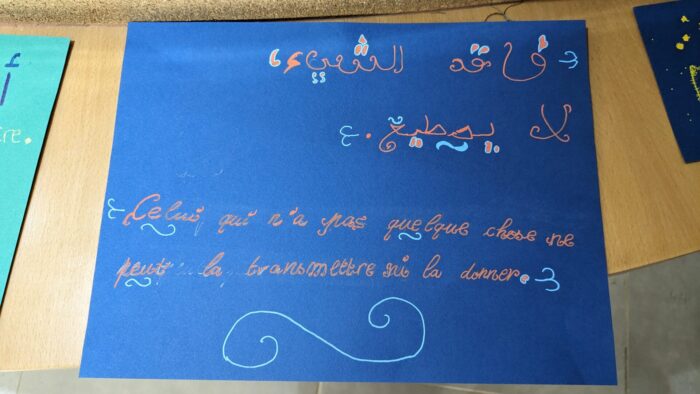 فاقد الشيء،
لا يعطيه.
Celui qui n'a pas quelque chose ne
peut la transmettre ni la donner.